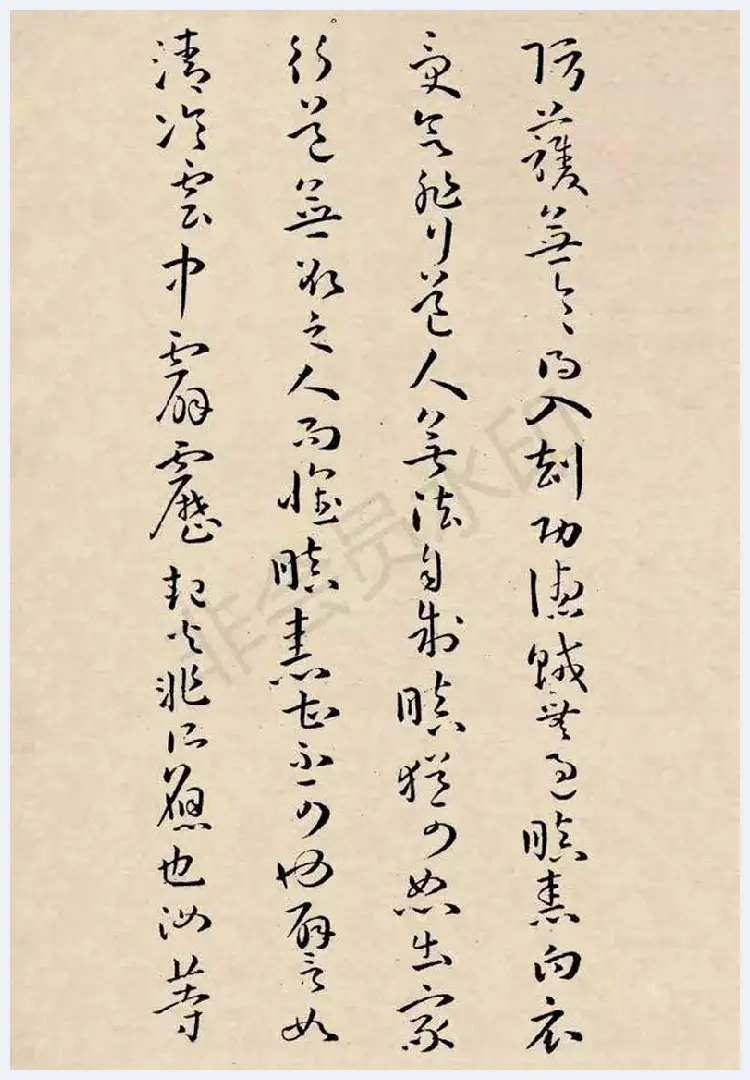 防護無令得入劫功德賊無過瞋恚白衣
受欲非行道人無法自制瞋猶可恕出家
行道無欲之人而懷瞋恚甚不可也譬如
清冷雲中霹靂起火非所應也汝等
非会员水印